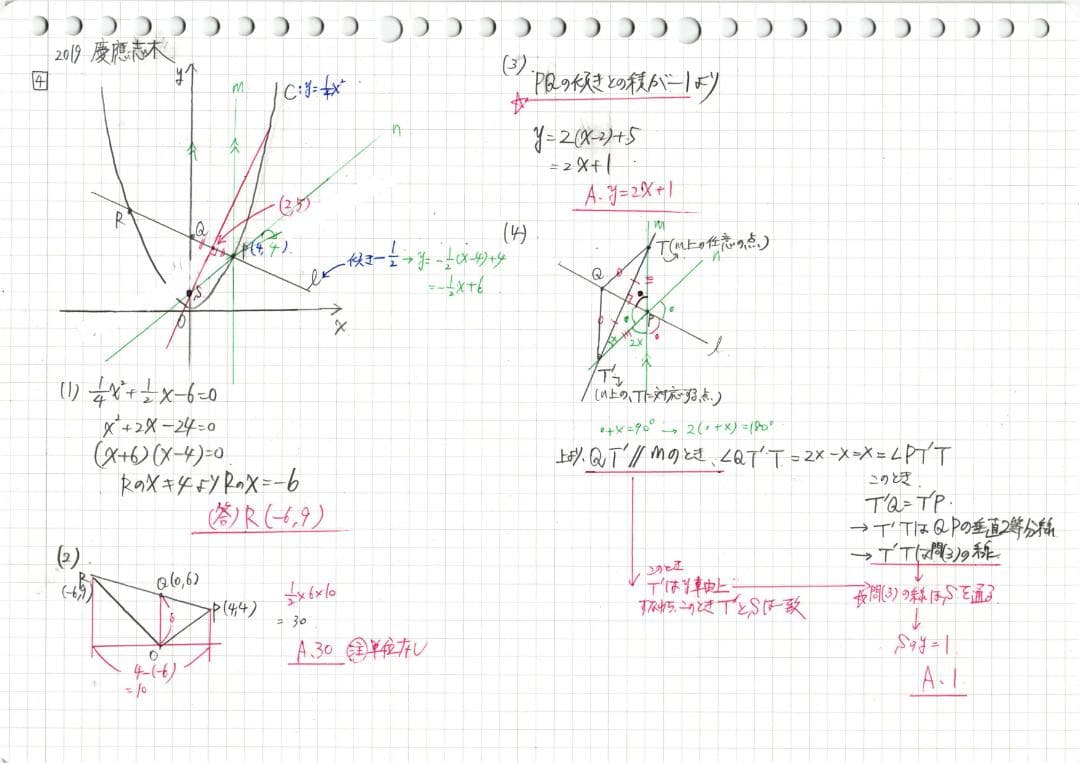 2019 慶應志木
4
y
m
C:y=1/4x²
n
(2,5)
R
Q
P(4,4)
傾き-1/2→y=-1/2(x-4)+4
=-1/2x+6
l
S
O
x
(1) 1/4x²+1/2x-6=0
x²+2x-24=0
(x+6)(x-4)=0
Rのx≠4よりRのx=-6
(答)R(-6,9)
(2)
R
(-6,9)
Q(0,6)
P(4,4)
6
O
4-(-6)
=10
1/2×6×10
=30
A.30 注単位なし
(3)
PQの傾きとの積が-1より
y=2(x-2)+5
=2x+1
A. y=2x+1
(4)
m
T(m上の任意の点)
n
Q
P
x
2x
l
T'
(n上の、Tに対応する点)
○+x=90°→2(○+x)=180°
上より、QT'//mのとき、∠QT'T=2x-x=x=∠PT'T
このとき
T'Q=T'P.
→T'TはQPの垂直2等分線
→T'Tは問(3)の線
このとき
T'はy軸上
すなわち、このときT'とSは一致
問(3)の線は、Sを通る
Sのy=1
A.1